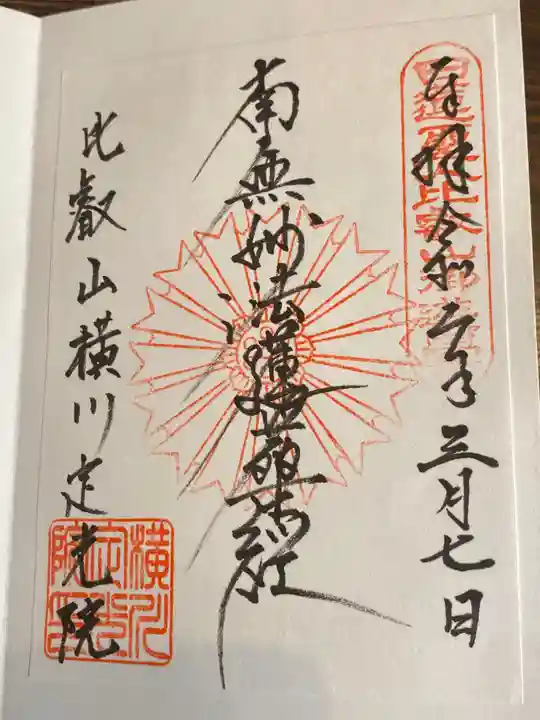 奉拝 令和二年三月七日
南無妙法蓮華経
比叡山横川定光院
横川定光院印